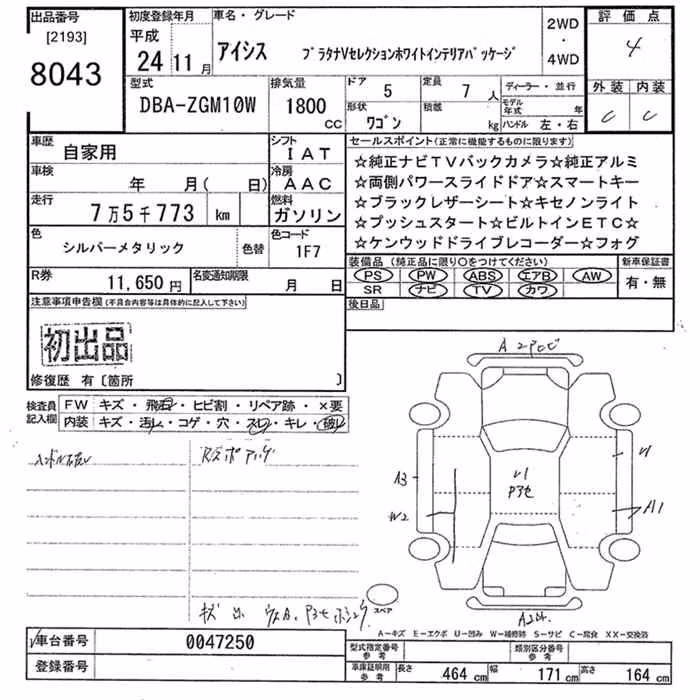 出品番号
[2193]
8043
初度登録年月
平成
24 11月
車名・グレード
アイシス プラタナVセレクションホワイトインテリアパッケージ
2WD
・
4WD
評価点
4
外装 内装
C C
型式
DBA-ZGM10W
排気量
1800
CC
ドア
5
定員
7 人
形状
ワゴン
積載
kg
ディーラー・並行
モデル年式 年
ハンドル 左・右
車歴
自家用
シフト
IAT
車検
年 月( 日)
冷房
AAC
走行
7万5千773 km
燃料
ガソリン
色
シルバーメタリック
色替
色コード
1F7
R券
11,650 円
名変通知期限
月 日
セールスポイント(正常に機能するものに限ります)
☆純正ナビTVバックカメラ☆純正アルミ
☆両側パワースライドドア☆スマートキー
☆ブラックレザーシート☆キセノンライト
☆プッシュスタート☆ビルトインETC☆
☆ケンウッドドライブレコーダー☆フォグ
装備品(純正品に限り○をつけてください)
PS PW ABS エアB AW
SR ナビ TV カワ
新車保証書
有・無
後日品
注意事項申告欄(不具合内容等は具体的に記入して下さい)
初出品
修復歴 有〔箇所 〕
検査員
記入欄
FW キズ・飛石・ヒビ割・リペア跡・×要
内装 キズ・汚レ・コゲ・穴・スレ・キレ・破レ
A3
W2
U1
A1
スペア
A-キズ E-エクボ U-凹み W-補修跡 S-サビ C-腐食 XX-交換済
車台番号
0047250
登録番号
型式指定番号
参考
類別区分番号
参考
車庫証明用
参考
長さ 464 cm
幅 171 cm
高さ 164 cm